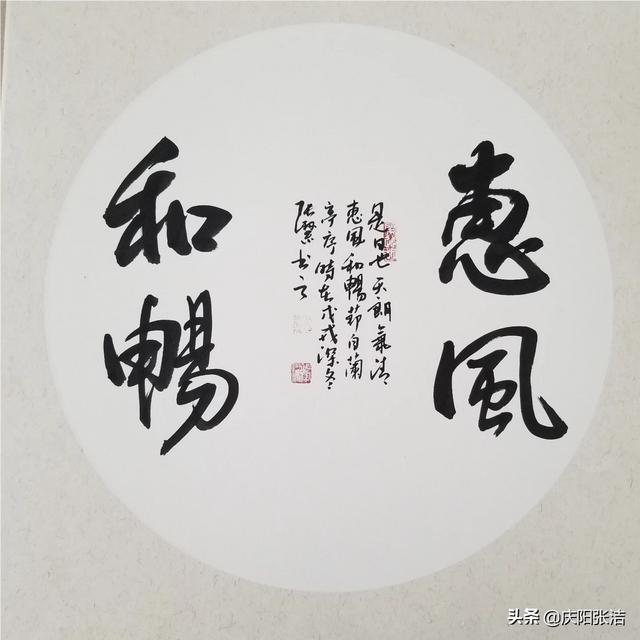 惠風
和暢
是日也天朗氣清
惠風和暢節自蘭
亭序時在戊戌深冬
張潔书之
头条 @庆阳张洁